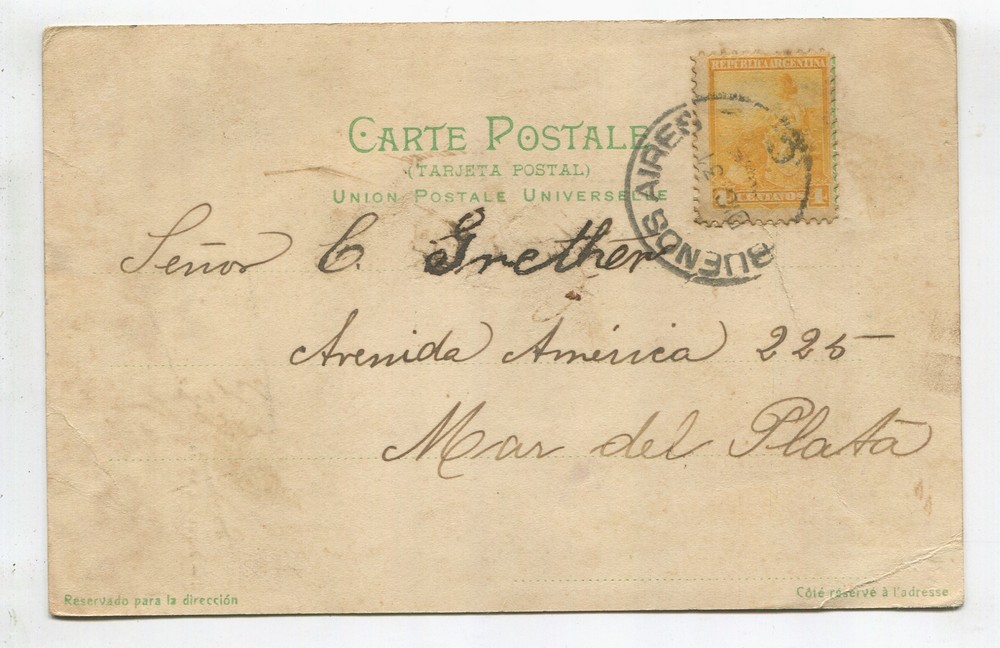 REPÚBLICA ARGENTINA
CENTAVOS 4
BUENOS AIRES
CARTE POSTALE
(TARJETA POSTAL)
UNION POSTALE UNIVERSELLE
Señor C. Grether
Avenida América 225
Mar del Plata
Reservado para la dirección
Côté réservé à l'adresse